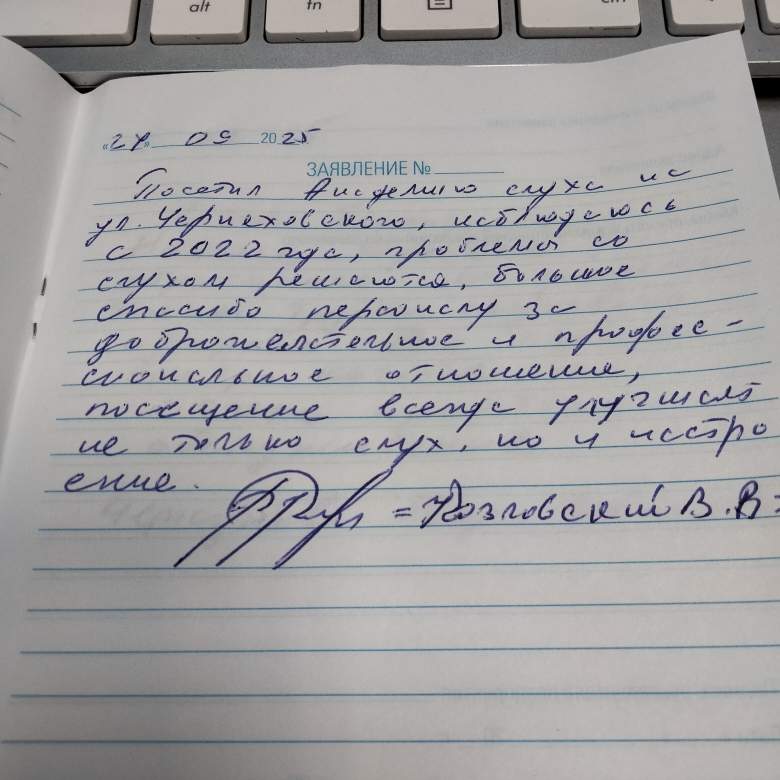 alt
fn
ctrl
«24» 09 2025
ЗАЯВЛЕНИЕ №
Посетил Академию слуха на
ул. Черняховского, наблюдаюсь
с 2022 года, проблемы со
слухом решаются, большое
спасибо персоналу за
доброжелательное и профес-
сиональное отношение,
посещение всегда улучшает
не только слух, но и настро
ение.
= Козловский В.В =